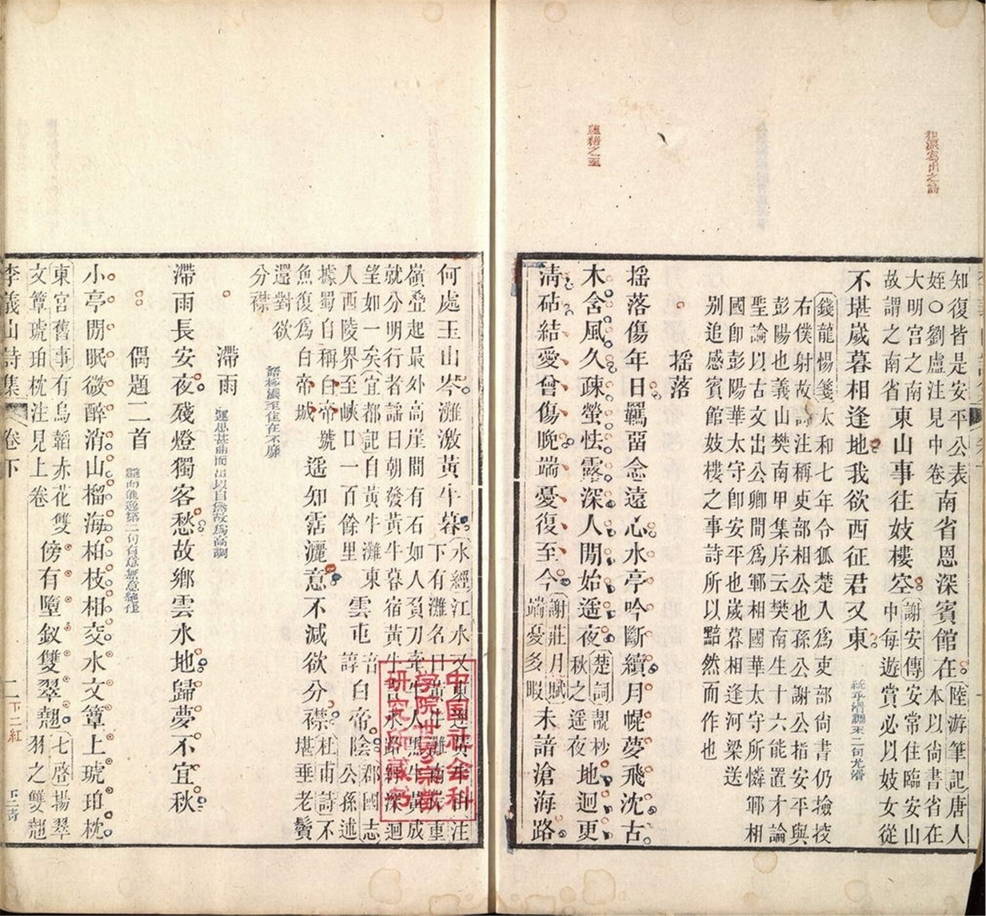 知復皆是安平公表
姪○劉盧注見中卷
南省恩深賓館在
陸游筆記唐人
本以尚書省在
大明宮之南
故謂之南省
東山事往妓樓空
謝安傳安常住臨安山
中每遊賞必以妓女從
不堪歲暮相逢地我欲西征君又東
錢龍惕箋太和七年令狐楚入爲吏部尚書仍撿挍
右僕射故詩注稱吏部相公也孫公謝公指安平與
彭陽也義山樊南甲集序云樊南生十六能著才論
聖論以古文出公卿間爲鄆相國華太守所憐鄆相
國卽彭陽華太守卽安平也歲暮相逢河梁送
別追感賓館妓樓之事詩所以黯然而作也
搖落
搖落傷年日羈留念遠心水亭吟斷續月幌夢飛沈古
蘊藉之至
木含風久疎螢怯露深人閒始遥夜
楚詞靚杪
秋之遥夜
地迥更
清砧結愛曾傷晚端憂復至今
謝莊月賦
端憂多暇
未諳滄海路
何處玉山岑灘激黃牛暮
水經江水又東逕黃牛
下有灘名曰黃牛灘南岸重
嶺疊起最外高崖間有石如人負刀牽牛人黑牛黃成
就分明行者謠曰朝發黃牛暮宿黃牛水路紆深迴
望如一矣宜都記自黃牛灘東
人西陵界至峽口一百餘里
雲屯白帝陰
郡國志
公孫述
據蜀自稱白帝號
魚復爲白帝城
遥知霑灑意不減欲分襟
杜甫詩不
堪垂老鬢
還對欲
分襟
滯雨
滯雨長安夜殘燈獨客愁故鄉雲水地歸夢不宜秋
偶題二首
小亭閒眠微醉消山榴海柏枝相交水文簟上琥珀枕
東宮舊事有烏韜赤花雙
文簟琥珀枕注見上卷
傍有墮釵雙翠翹
七啓揚翠
羽之雙翹
李義山詩集
卷下
中国社会科
学院世界宗教
研究所藏書